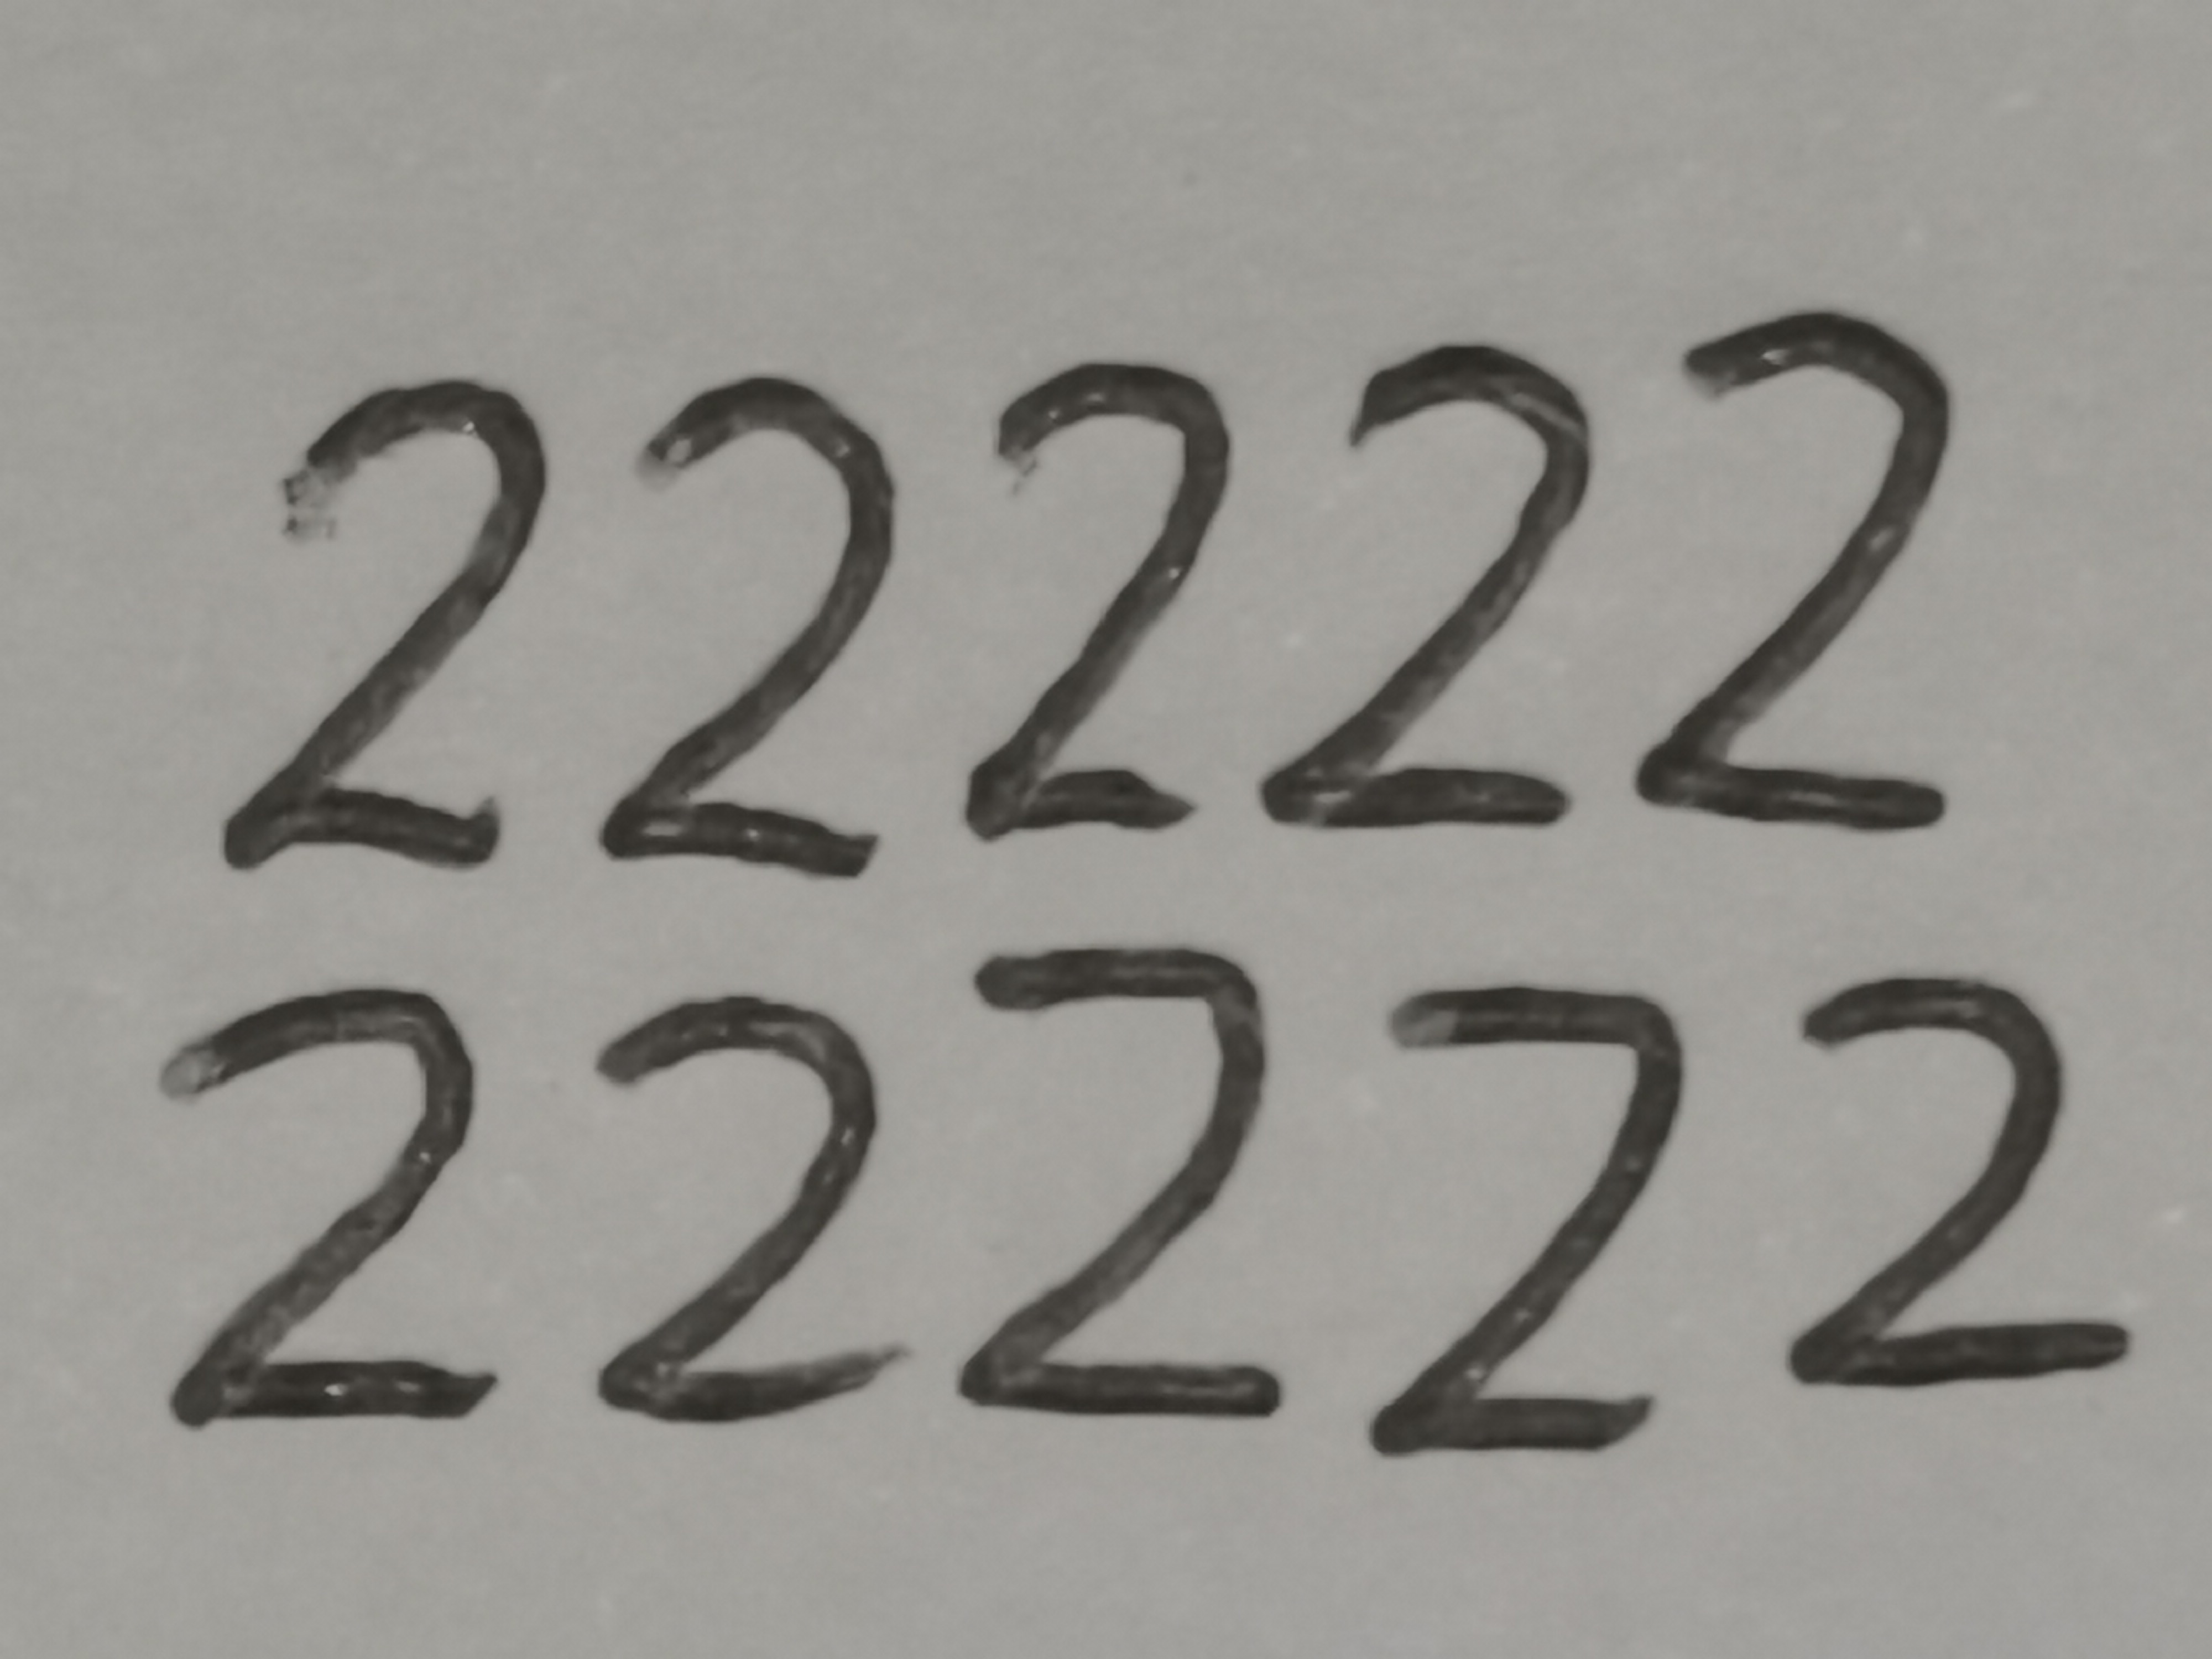 22222
22222